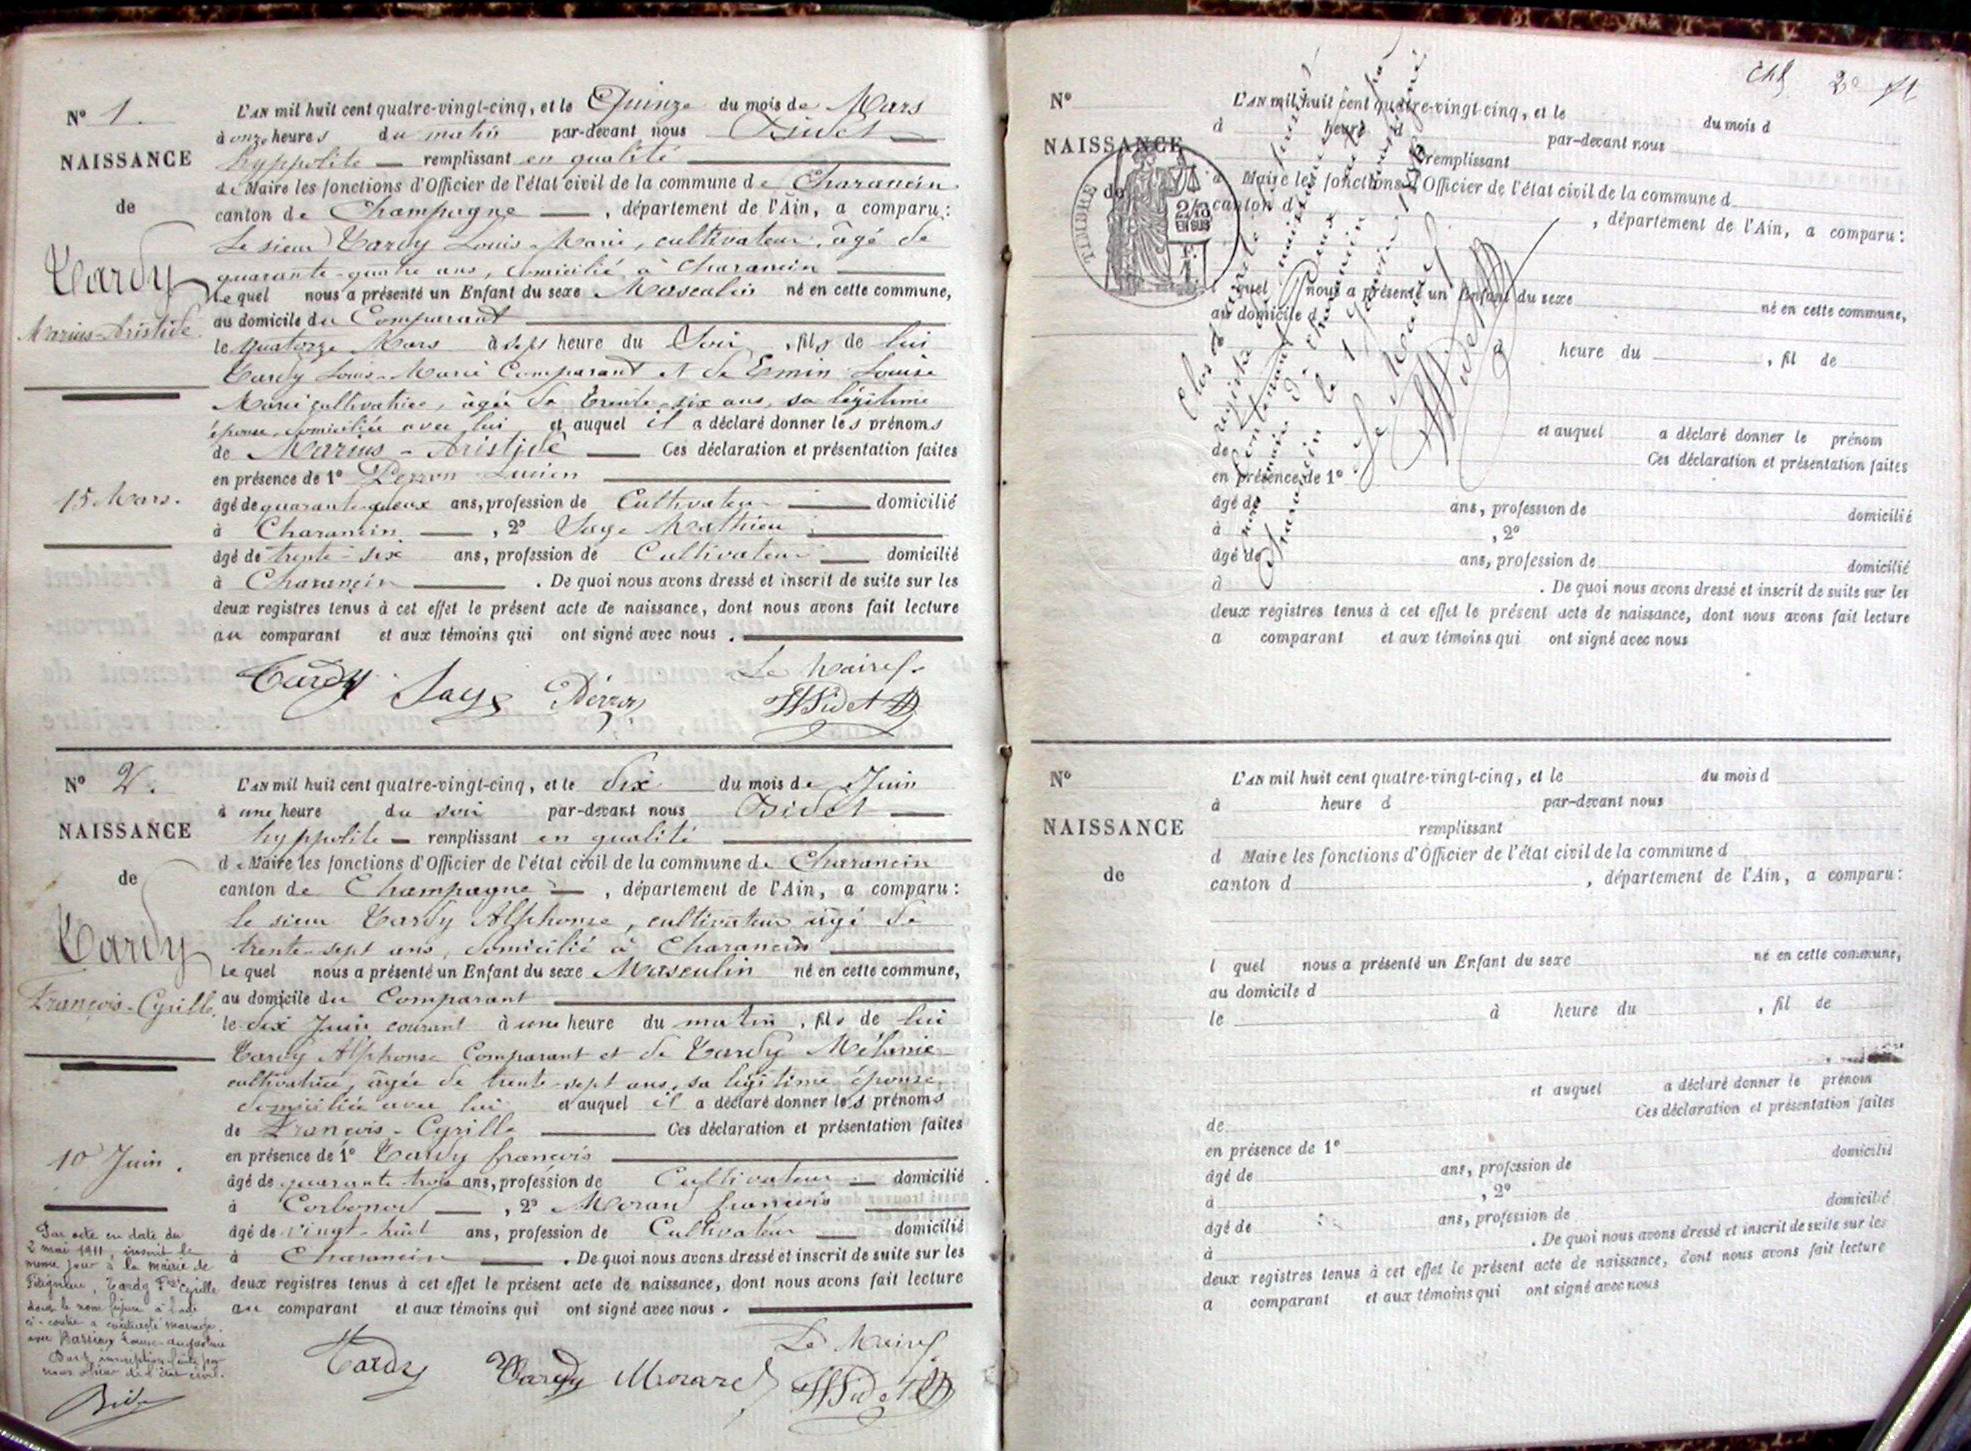 N° 1.
NAISSANCE
de
Tardy
Marius-Aristide
15 Mars.
L'AN mil huit cent quatre-vingt-cinq, et le Quinze du mois de Mars
à onze heures du matin par-devant nous Bidet
hyppolite remplissant en qualité
de Maire les fonctions d'Officier de l'état civil de la commune de Charancin
canton de Champagne, département de l'Ain, a comparu :
Le sieur Tardy Louis-Marie, cultivateur, âgé de
quarante-quatre ans, domicilié à Charancin
Lequel nous a présenté un Enfant du sexe Masculin né en cette commune,
au domicile du Comparant
le quatorze Mars à sept heure du Soir, fils de lui
Tardy Louis-Marie Comparant et de Emin Louise
Marie cultivatrice, âgée de trente-six ans, sa légitime
épouse, domiciliée avec lui et auquel il a déclaré donner les prénoms
de Marius-Aristide Ces déclaration et présentation faites
en présence de 1° Perron Lucien
âgé de quarante-deux ans, profession de Cultivateur domicilié
à Charancin, 2° Saye Mathieu
âgé de trente-six ans, profession de Cultivateur domicilié
à Charancin. De quoi nous avons dressé et inscrit de suite sur les
deux registres tenus à cet effet le présent acte de naissance, dont nous avons fait lecture
au comparant et aux témoins qui ont signé avec nous.
Le Maire
Tardy Saye Perron HBidet
N° 2.
NAISSANCE
de
Tardy
François-Cyrille
10 Juin.
L'AN mil huit cent quatre-vingt-cinq, et le dix du mois de Juin
à une heure du soir par-devant nous Bidet
hyppolite remplissant en qualité
de Maire les fonctions d'Officier de l'état civil de la commune de Charancin
canton de Champagne, département de l'Ain, a comparu :
Le sieur Tardy Alphonse, cultivateur âgé de
trente-sept ans, domicilié à Charancin
Lequel nous a présenté un Enfant du sexe Masculin né en cette commune,
au domicile du Comparant
le dix Juin courant à une heure du matin, fils de lui
Tardy Alphonse Comparant et de Tardy Mélanie
cultivatrice, âgée de trente-sept ans, sa légitime épouse,
domiciliée avec lui et auquel il a déclaré donner les prénoms
de François-Cyrille Ces déclaration et présentation faites
en présence de 1° Tardy françois
âgé de quarante trois ans, profession de Cultivateur domicilié
à Corbonod, 2° françois
âgé de vingt-huit ans, profession de Cultivateur domicilié
à Charancin. De quoi nous avons dressé et inscrit de suite sur les
deux registres tenus à cet effet le présent acte de naissance, dont nous avons fait lecture
au comparant et aux témoins qui ont signé avec nous.
Le Maire
Tardy Tardy HBidet
Par acte en date du
2 mai 1911, inscrit le
même jour à la mairie de
Tardy Fçois Cyrille
dont le nom figure à l'acte
ci-contre a contracté mariage
avec Louise
nous officier de l'état civil.
2e
N°
NAISSANCE
de
TIMBRE
2/10
EN SUS
L'AN mil huit cent quatre-vingt-cinq, et le du mois d
à heure d par-devant nous
remplissant
d Maire les fonctions d'Officier de l'état civil de la commune d
canton d , département de l'Ain, a comparu :
l quel nous a présenté un Enfant du sexe né en cette commune,
au domicile d
à heure du , fil de
et auquel a déclaré donner le prénom
de Ces déclaration et présentation faites
en présence de 1°
âgé de ans, profession de domicilié
à , 2°
âgé de ans, profession de domicilié
à . De quoi nous avons dressé et inscrit de suite sur les
deux registres tenus à cet effet le présent acte de naissance, dont nous avons fait lecture
a comparant et aux témoins qui ont signé avec nous
Le Maire
HBidet
N°
NAISSANCE
de
L'AN mil huit cent quatre-vingt-cinq, et le du mois d
à heure d par-devant nous
remplissant
d Maire les fonctions d'Officier de l'état civil de la commune d
canton d , département de l'Ain, a comparu :
l quel nous a présenté un Enfant du sexe né en cette commune,
au domicile d
le à heure du , fil de
et auquel a déclaré donner le prénom
de Ces déclaration et présentation faites
en présence de 1°
âgé de ans, profession de domicilié
à , 2°
âgé de ans, profession de domicilié
à . De quoi nous avons dressé et inscrit de suite sur les
deux registres tenus à cet effet le présent acte de naissance, dont nous avons fait lecture
a comparant et aux témoins qui ont signé avec nous